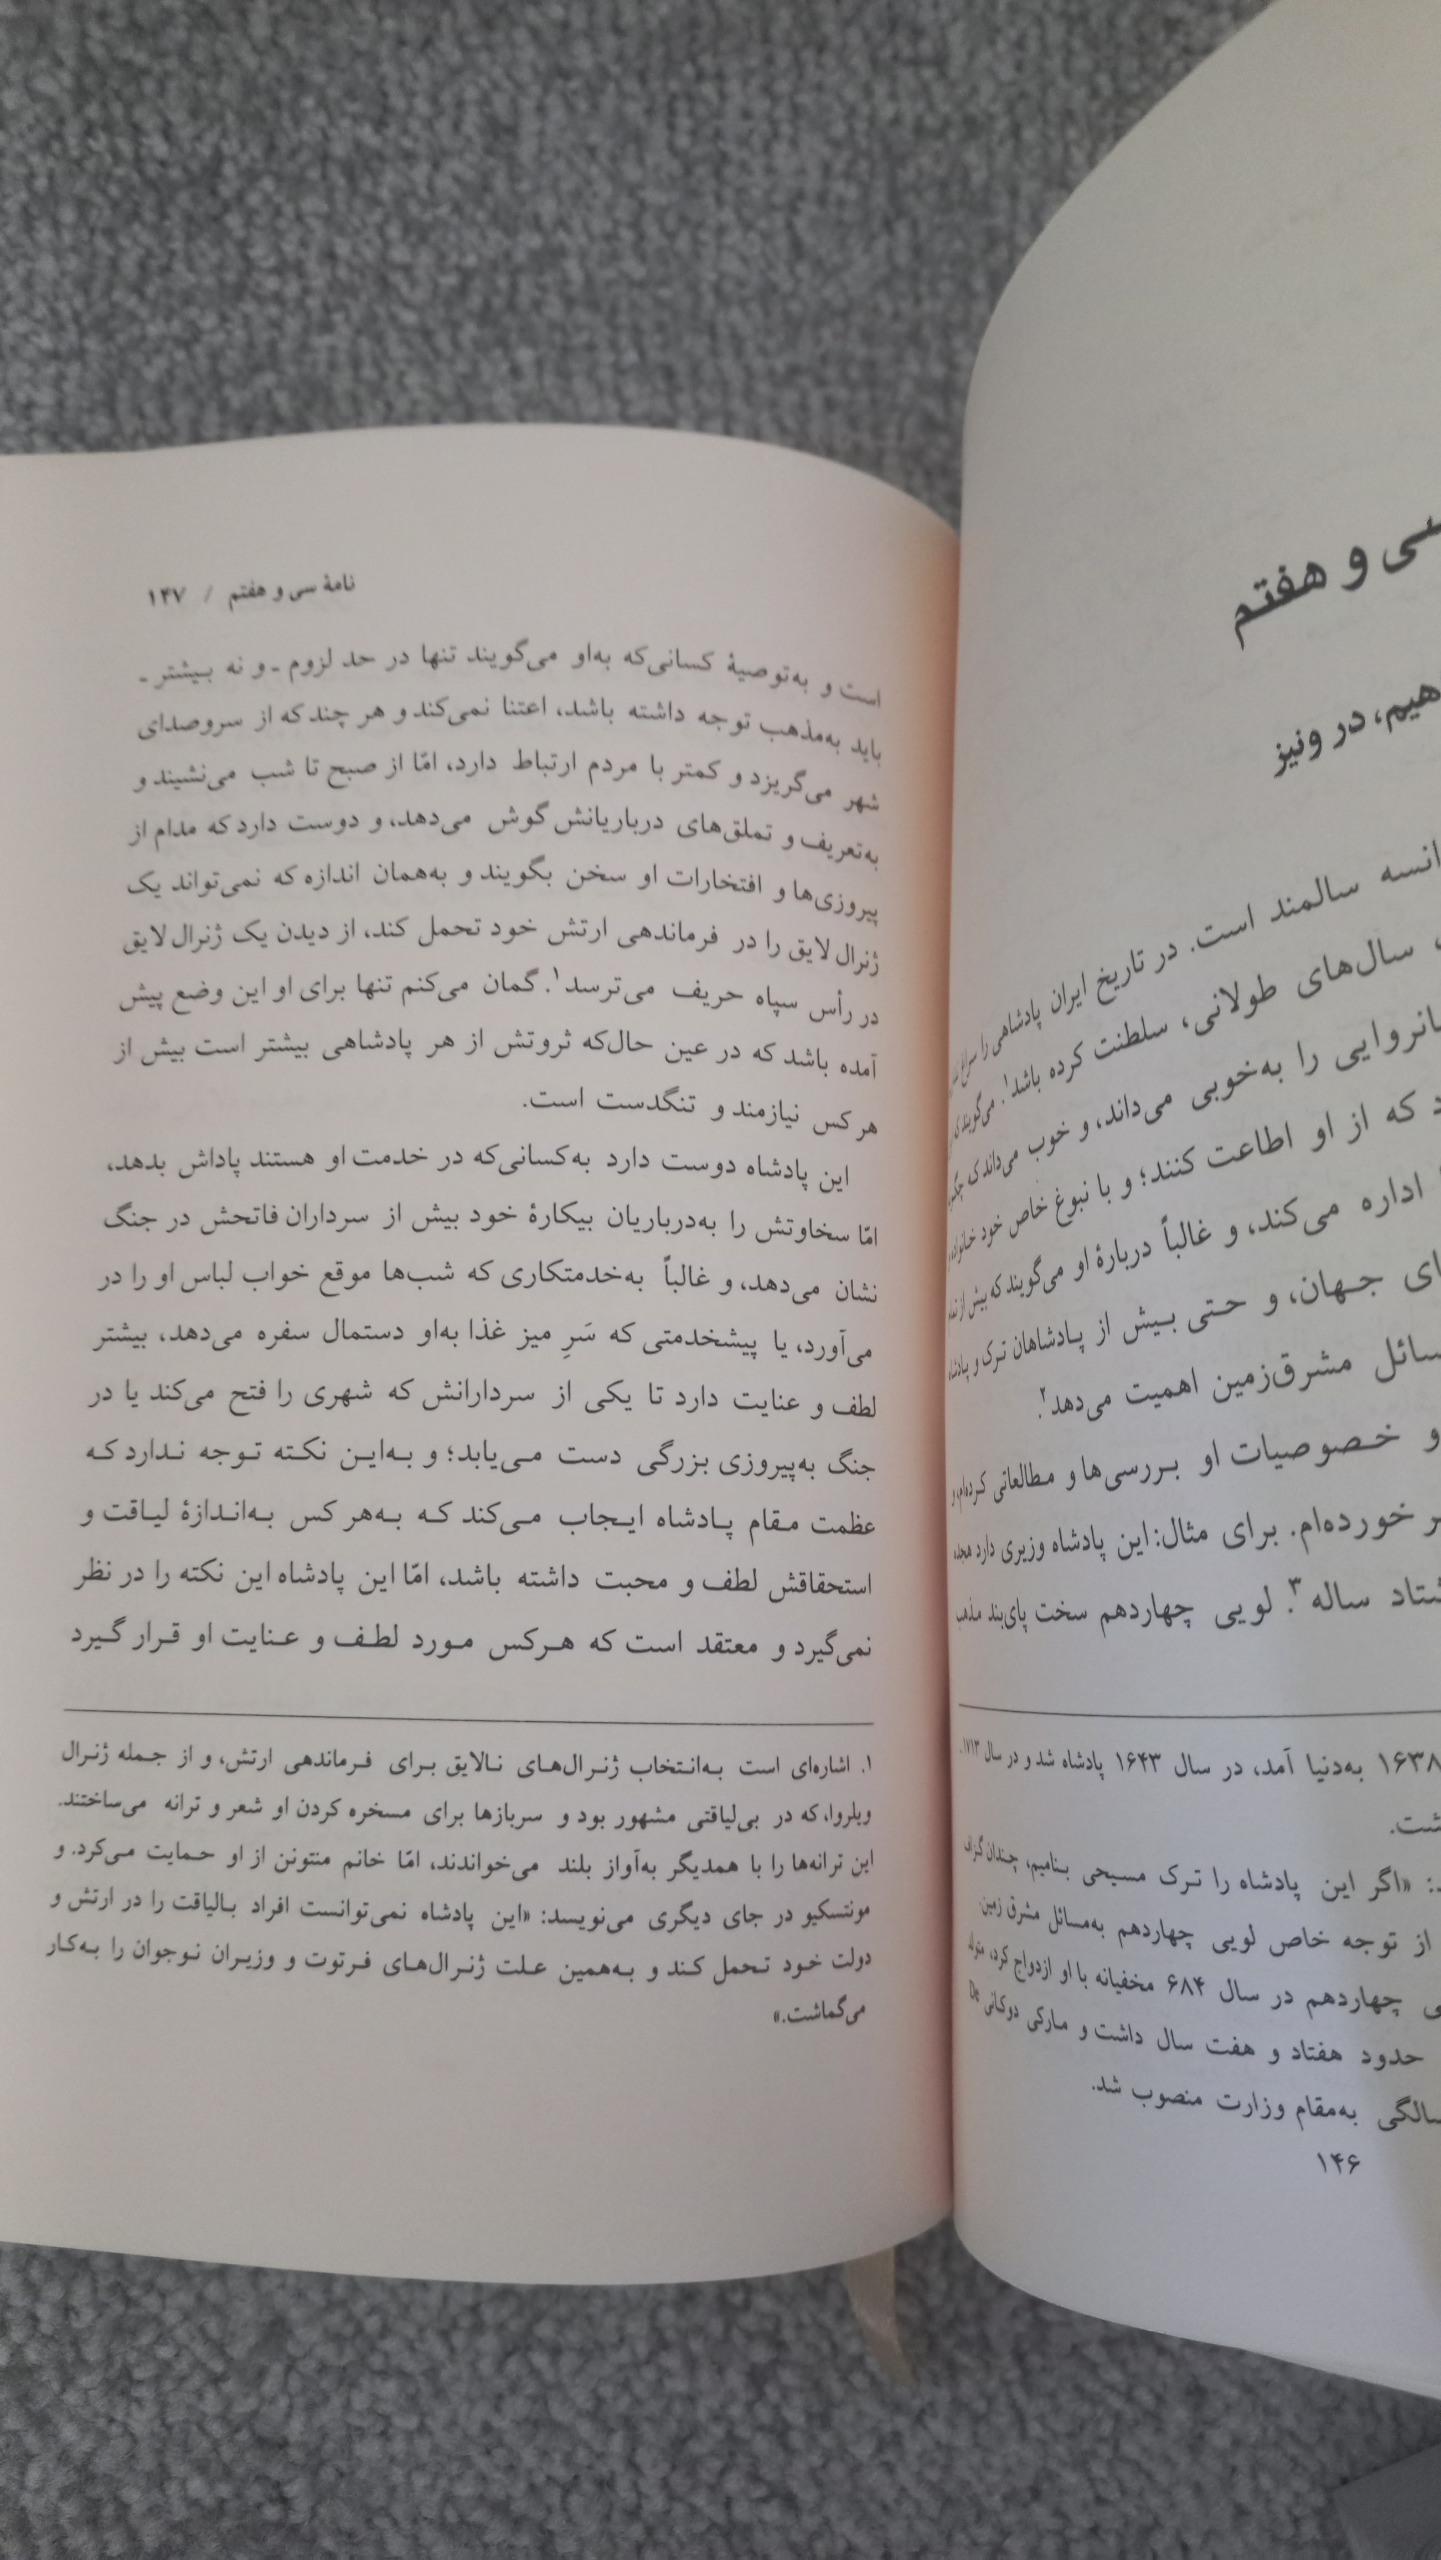 سی و هفتم
هیم، در ونیز
سالمند است. در تاریخ ایران پادشاهی را
سال‌های طولانی، سلطنت کرده باشد۱. می‌گویند
را به‌خوبی می‌داند، و خوب می‌داند که
که از او اطاعت کنند؛ و با نبوغ خاص خود
اداره می‌کند، و غالباً دربارهٔ او می‌گویند که بیش از
جهان، و حتی بیش از پادشاهان ترک و
مشرق‌زمین اهمیت می‌دهد۲.
و خصوصیات او بررسی‌ها و مطالعاتی کرده‌ام، و
خورده‌ام. برای مثال: این پادشاه وزیری دارد
ساله۳. لویی چهاردهم سخت پای‌بند مذهب
۱۶۳۸ به‌دنیا آمد، در سال ۱۶۴۳ پادشاه شد و در سال ۱۷۱۳
«اگر این پادشاه را ترک مسیحی بنامیم، چندان گزاف
از توجه خاص لویی چهاردهم به‌مسائل مشرق زمین.
چهاردهم در سال ۶۸۴ مخفیانه با او ازدواج کرد، متولد
حدود هفتاد و هفت سال داشت و مارکی دوکانی De
به‌مقام وزارت منصوب شد.
۱۴۶
نامهٔ سی و هفتم / ۱۴۷
است و به‌توصیهٔ کسانی‌که به‌او می‌گویند تنها در حد لزوم ـ و نه بیشتر ـ
باید به‌مذهب توجه داشته باشد، اعتنا نمی‌کند و هر چند که از سروصدای
شهر می‌گریزد و کمتر با مردم ارتباط دارد، امّا از صبح تا شب می‌نشیند و
به‌تعریف و تملق‌های درباریانش گوش می‌دهد، و دوست دارد که مدام از
پیروزی‌ها و افتخارات او سخن بگویند و به‌همان اندازه که نمی‌تواند یک
ژنرال لایق را در فرماندهی ارتش خود تحمل کند، از دیدن یک ژنرال لایق
در رأس سپاه حریف می‌ترسد۱. گمان می‌کنم تنها برای او این وضع پیش
آمده باشد که در عین حال‌که ثروتش از هر پادشاهی بیشتر است بیش از
هر کس نیازمند و تنگدست است.
این پادشاه دوست دارد به‌کسانی‌که در خدمت او هستند پاداش بدهد،
امّا سخاوتش را به‌درباریان بیکارهٔ خود بیش از سرداران فاتحش در جنگ
نشان می‌دهد، و غالباً به‌خدمتکاری که شب‌ها موقع خواب لباس او را در
می‌آورد، یا پیشخدمتی که سَرِ میز غذا به‌او دستمال سفره می‌دهد، بیشتر
لطف و عنایت دارد تا یکی از سردارانش که شهری را فتح می‌کند یا در
جنگ به‌پیروزی بزرگی دست می‌یابد؛ و به‌این نکته توجه ندارد که
عظمت مقام پادشاه ایجاب می‌کند که به‌هر کس به‌اندازهٔ لیاقت و
استحقاقش لطف و محبت داشته باشد، امّا این پادشاه این نکته را در نظر
نمی‌گیرد و معتقد است که هرکس مورد لطف و عنایت او قرار گیرد
۱. اشاره‌ای است به‌انتخاب ژنرال‌های نالایق برای فرماندهی ارتش، و از جمله ژنرال
ویلروا، که در بی‌لیاقتی مشهور بود و سربازها برای مسخره کردن او شعر و ترانه می‌ساختند.
این ترانه‌ها را با همدیگر به‌آواز بلند می‌خواندند، امّا خانم منتونن از او حمایت می‌کرد. و
مونتسکیو در جای دیگری می‌نویسد: «این پادشاه نمی‌توانست افراد بالیاقت را در ارتش و
دولت خود تحمل کند و به‌همین علت ژنرال‌های فرتوت و وزیران نوجوان را به‌کار
می‌گماشت.»